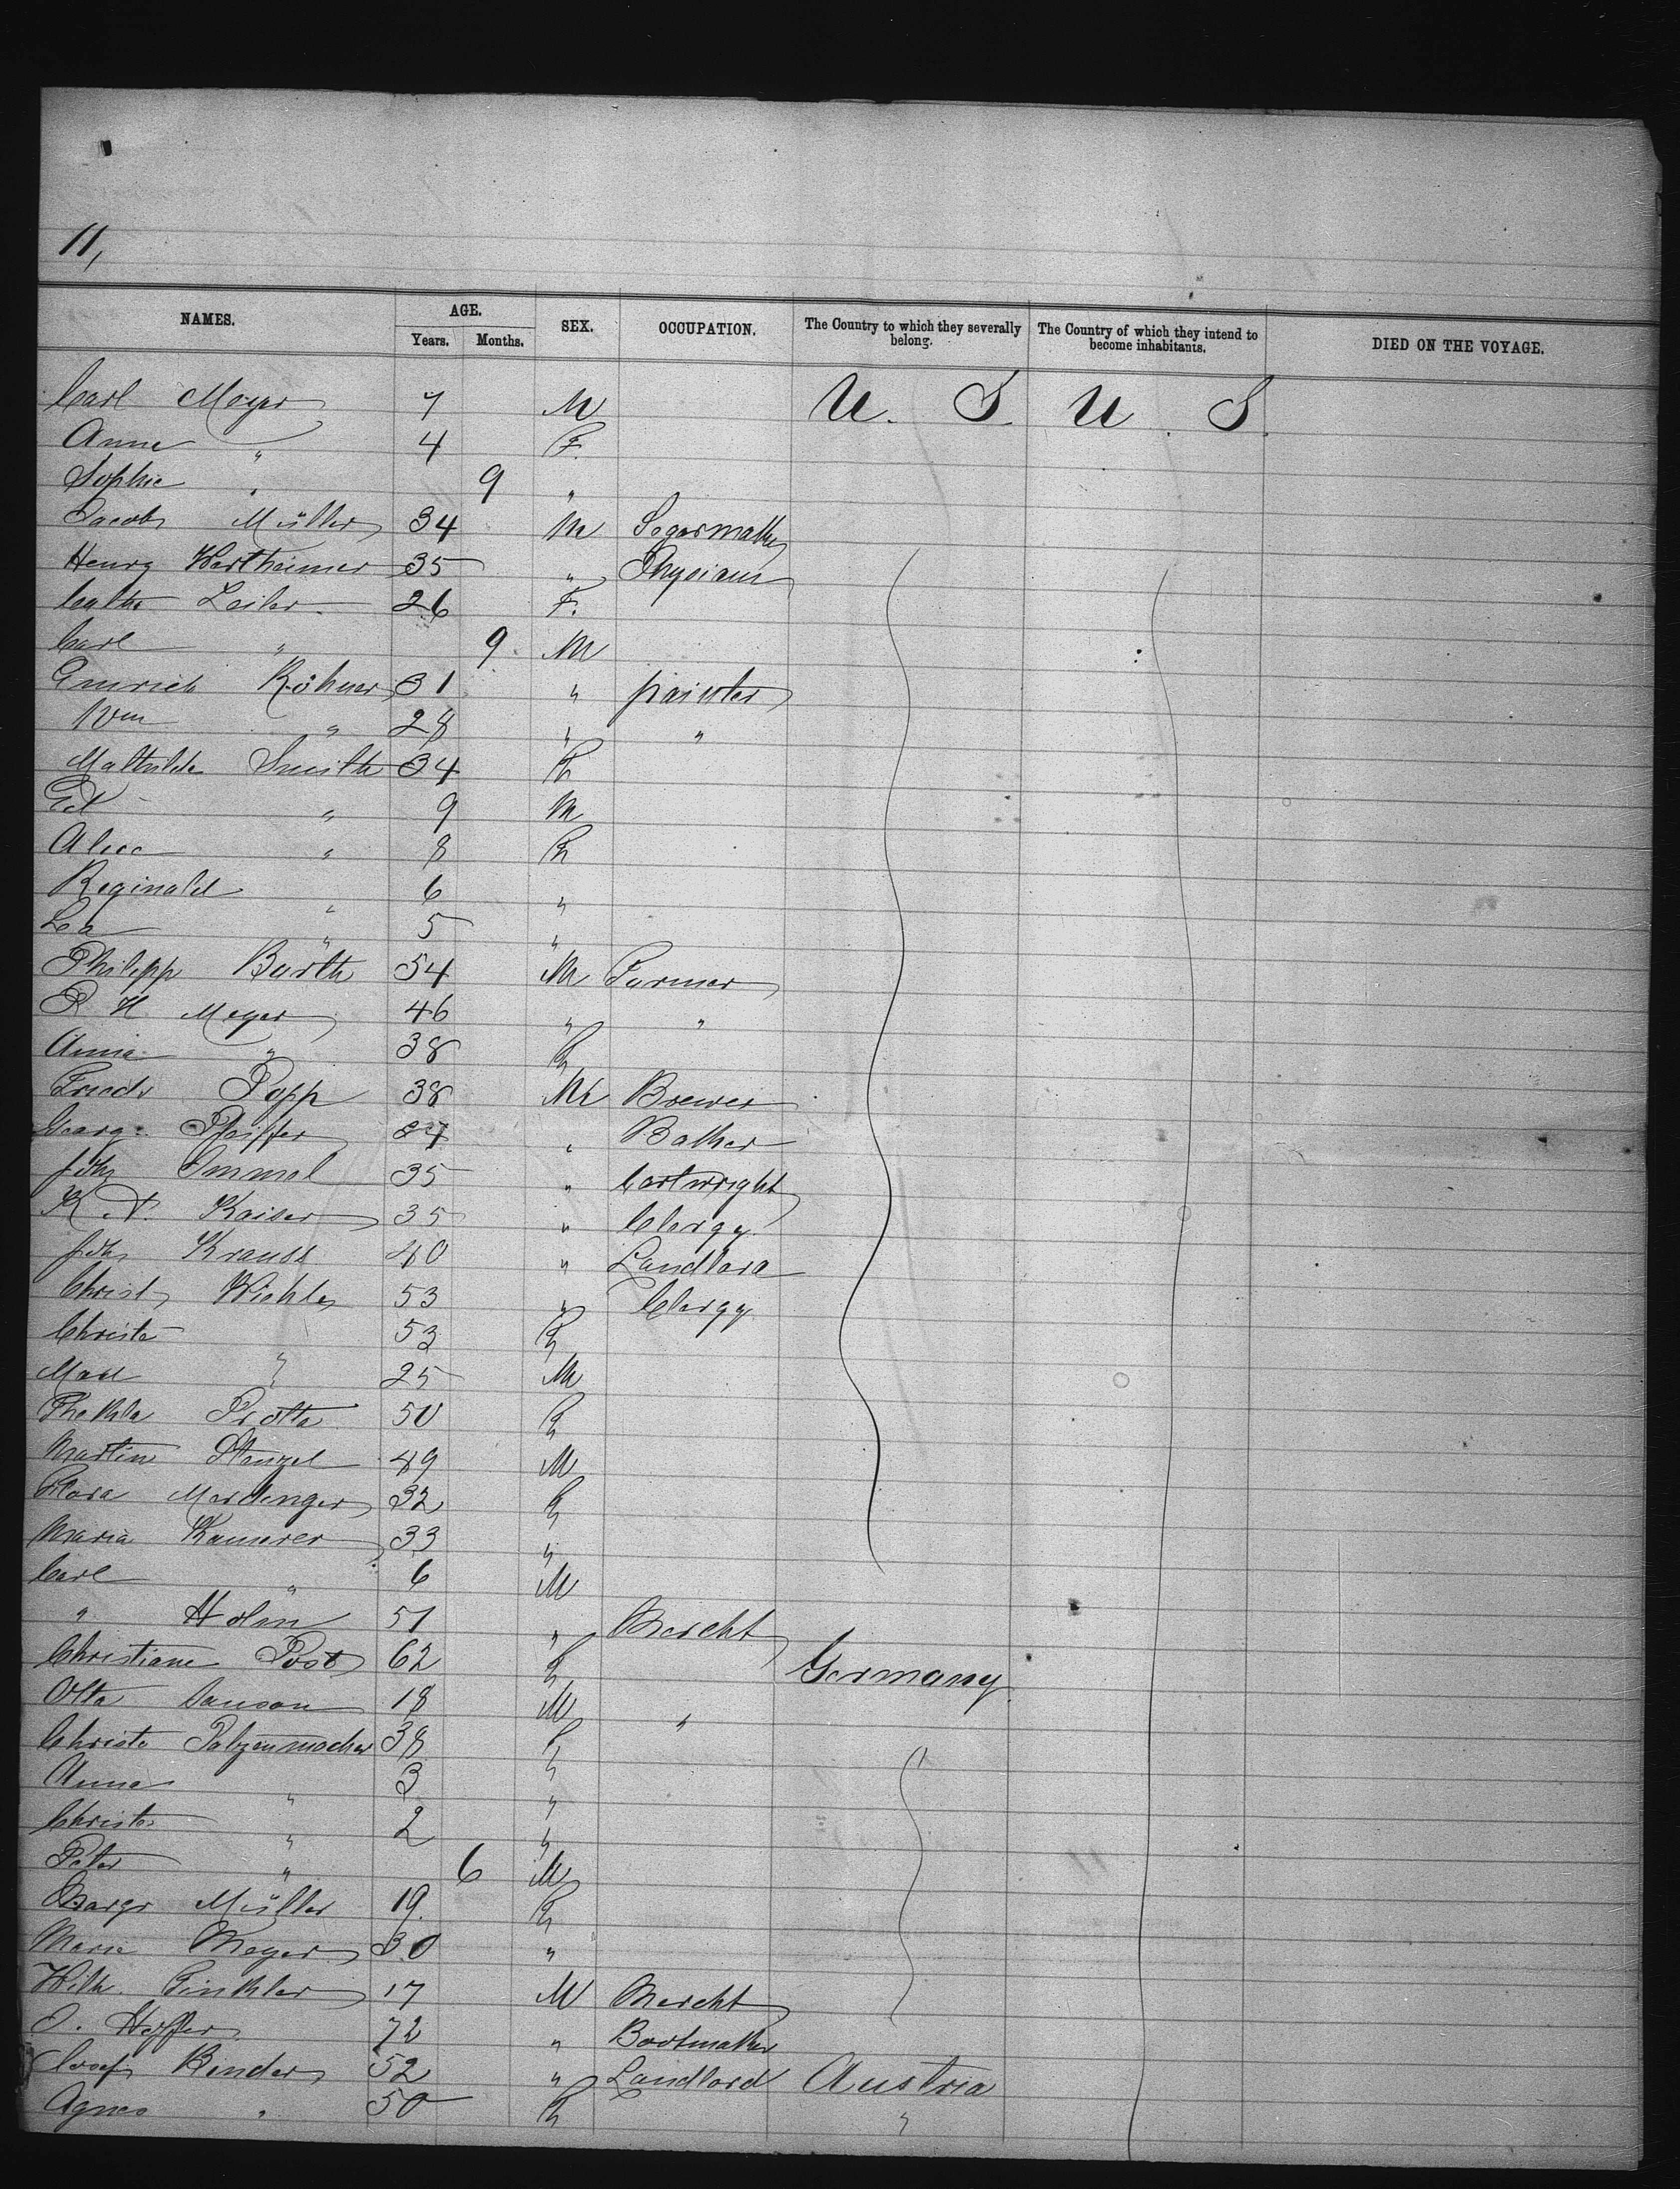 11,
NAMES. AGE. SEX. OCCUPATION. The Country to which they severally belong. The Country of which they intend to become inhabitants. DIED ON THE VOYAGE.
Years. Months.
Carl Meyer 7 M U. S. U. S.
Anne " 4 F.
Sophie " 9 "
Jacob Müller 34 M Segarmaker
Henry Wertheimer 35 " Physician
Cathe Leiler 26 F.
Carl " 9 M
Emrich Röhner 31 " painter
Wm " 28 " "
Mathilde Smith 34 F
Ed " 9 M
Alice " 8 F
Reginald " 6 "
Lea " 5 "
Philipp Barth 54 M Farmer
R H Meyer 46 " "
Anna " 38 F
Friedr Popp 38 M Brewer
Georg Pfeiffer 27 " Baker
Joh Immel 35 " Cartwright
K. N. Kaiser 35 " Clergy
Joh Krauss 40 " Landlord
Christ Wichler 53 " Clergy
Christe " 53 F
Max " 25 M
Thekla Protte 50 F
Martin Stenzel 49 M
Flora Merdinger 32 F
Maria Kamerer 33 "
Carl " 6 M
" Holm 51 " Mercht
Christiane Post 62 F Germany
Otto Sanson 18 M "
Christe Patzenmacher 38 F
Anna " 3 "
Christe " 2 "
Peter " 6 M
Margr Müller 19 F
Marie Meyer 30 "
Wilh. Finkler 17 M Mercht
J. Höffer 72 " Bootmaker
Josef Binder 52 " Landlord Austria
Agnes " 50 F "